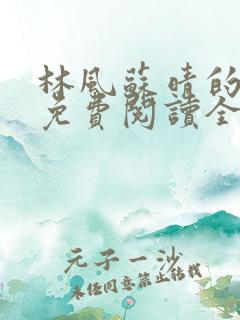 林風蘇晴的
免費閱讀全
元子一沙
未經同意禁止轉載